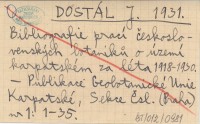 O DOSTÁL J. 1931.
Bibliografie prací českoslo-
venských botaniků o území
karpatském za léta 1918-1930.
— Publikace Geobotanické Unie
Karpatské, Sekce Čsl. (Praha)
nº 1: 1-35.